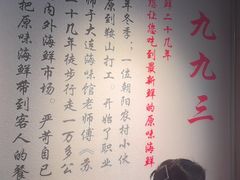 九九三
鲜二十几年
您让您吃到最新鲜的原味海鲜
年冬季；一位朝阳农村小伙
原到鞍山打工。开始了职业
师于大连海味馆老师傅《苏
二十几年徒步行走一万多公
内外海鲜市场。严苛自己
把原味海鲜带到客人的餐